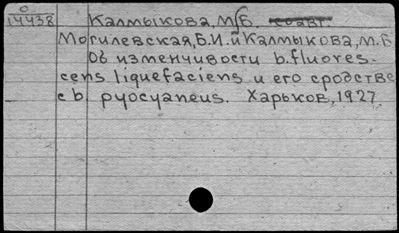 0
14438 Калмыкова, М.Б. соавт.
Могилевская, Б.И. и Калмыкова, М.Б
Об изменчивости b. fluores-
cens liquefaciens и его сродстве
с b. pyocyaneus. Харьков, 1927